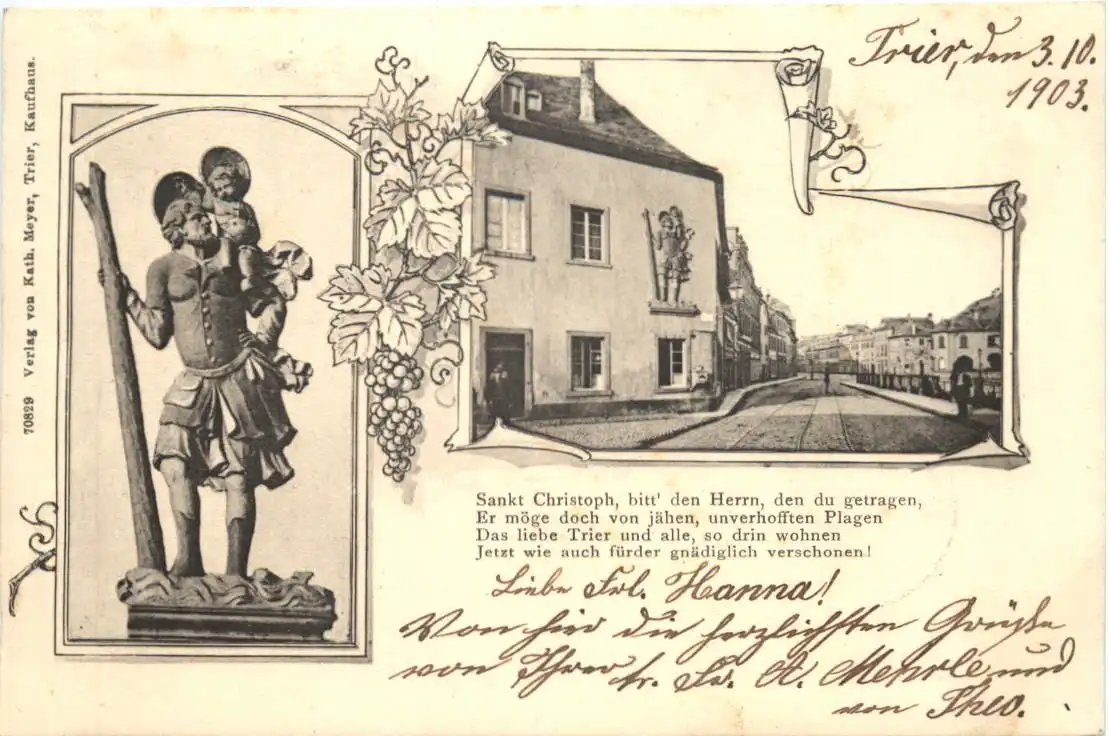 Trier, den 3.10.
1903.
70829 Verlag von Kath. Meyer, Trier, Kaufhaus.
Sankt Christoph, bitt' den Herrn, den du getragen,
Er möge doch von jähen, unverhofften Plagen
Das liebe Trier und alle, so drin wohnen
Jetzt wie auch fürder gnädiglich verschonen!
Liebe Frl. Hanna!
Von hier die herzlichsten Grüße
von Ihrer Fr. A. Mehrle und
von Theo.